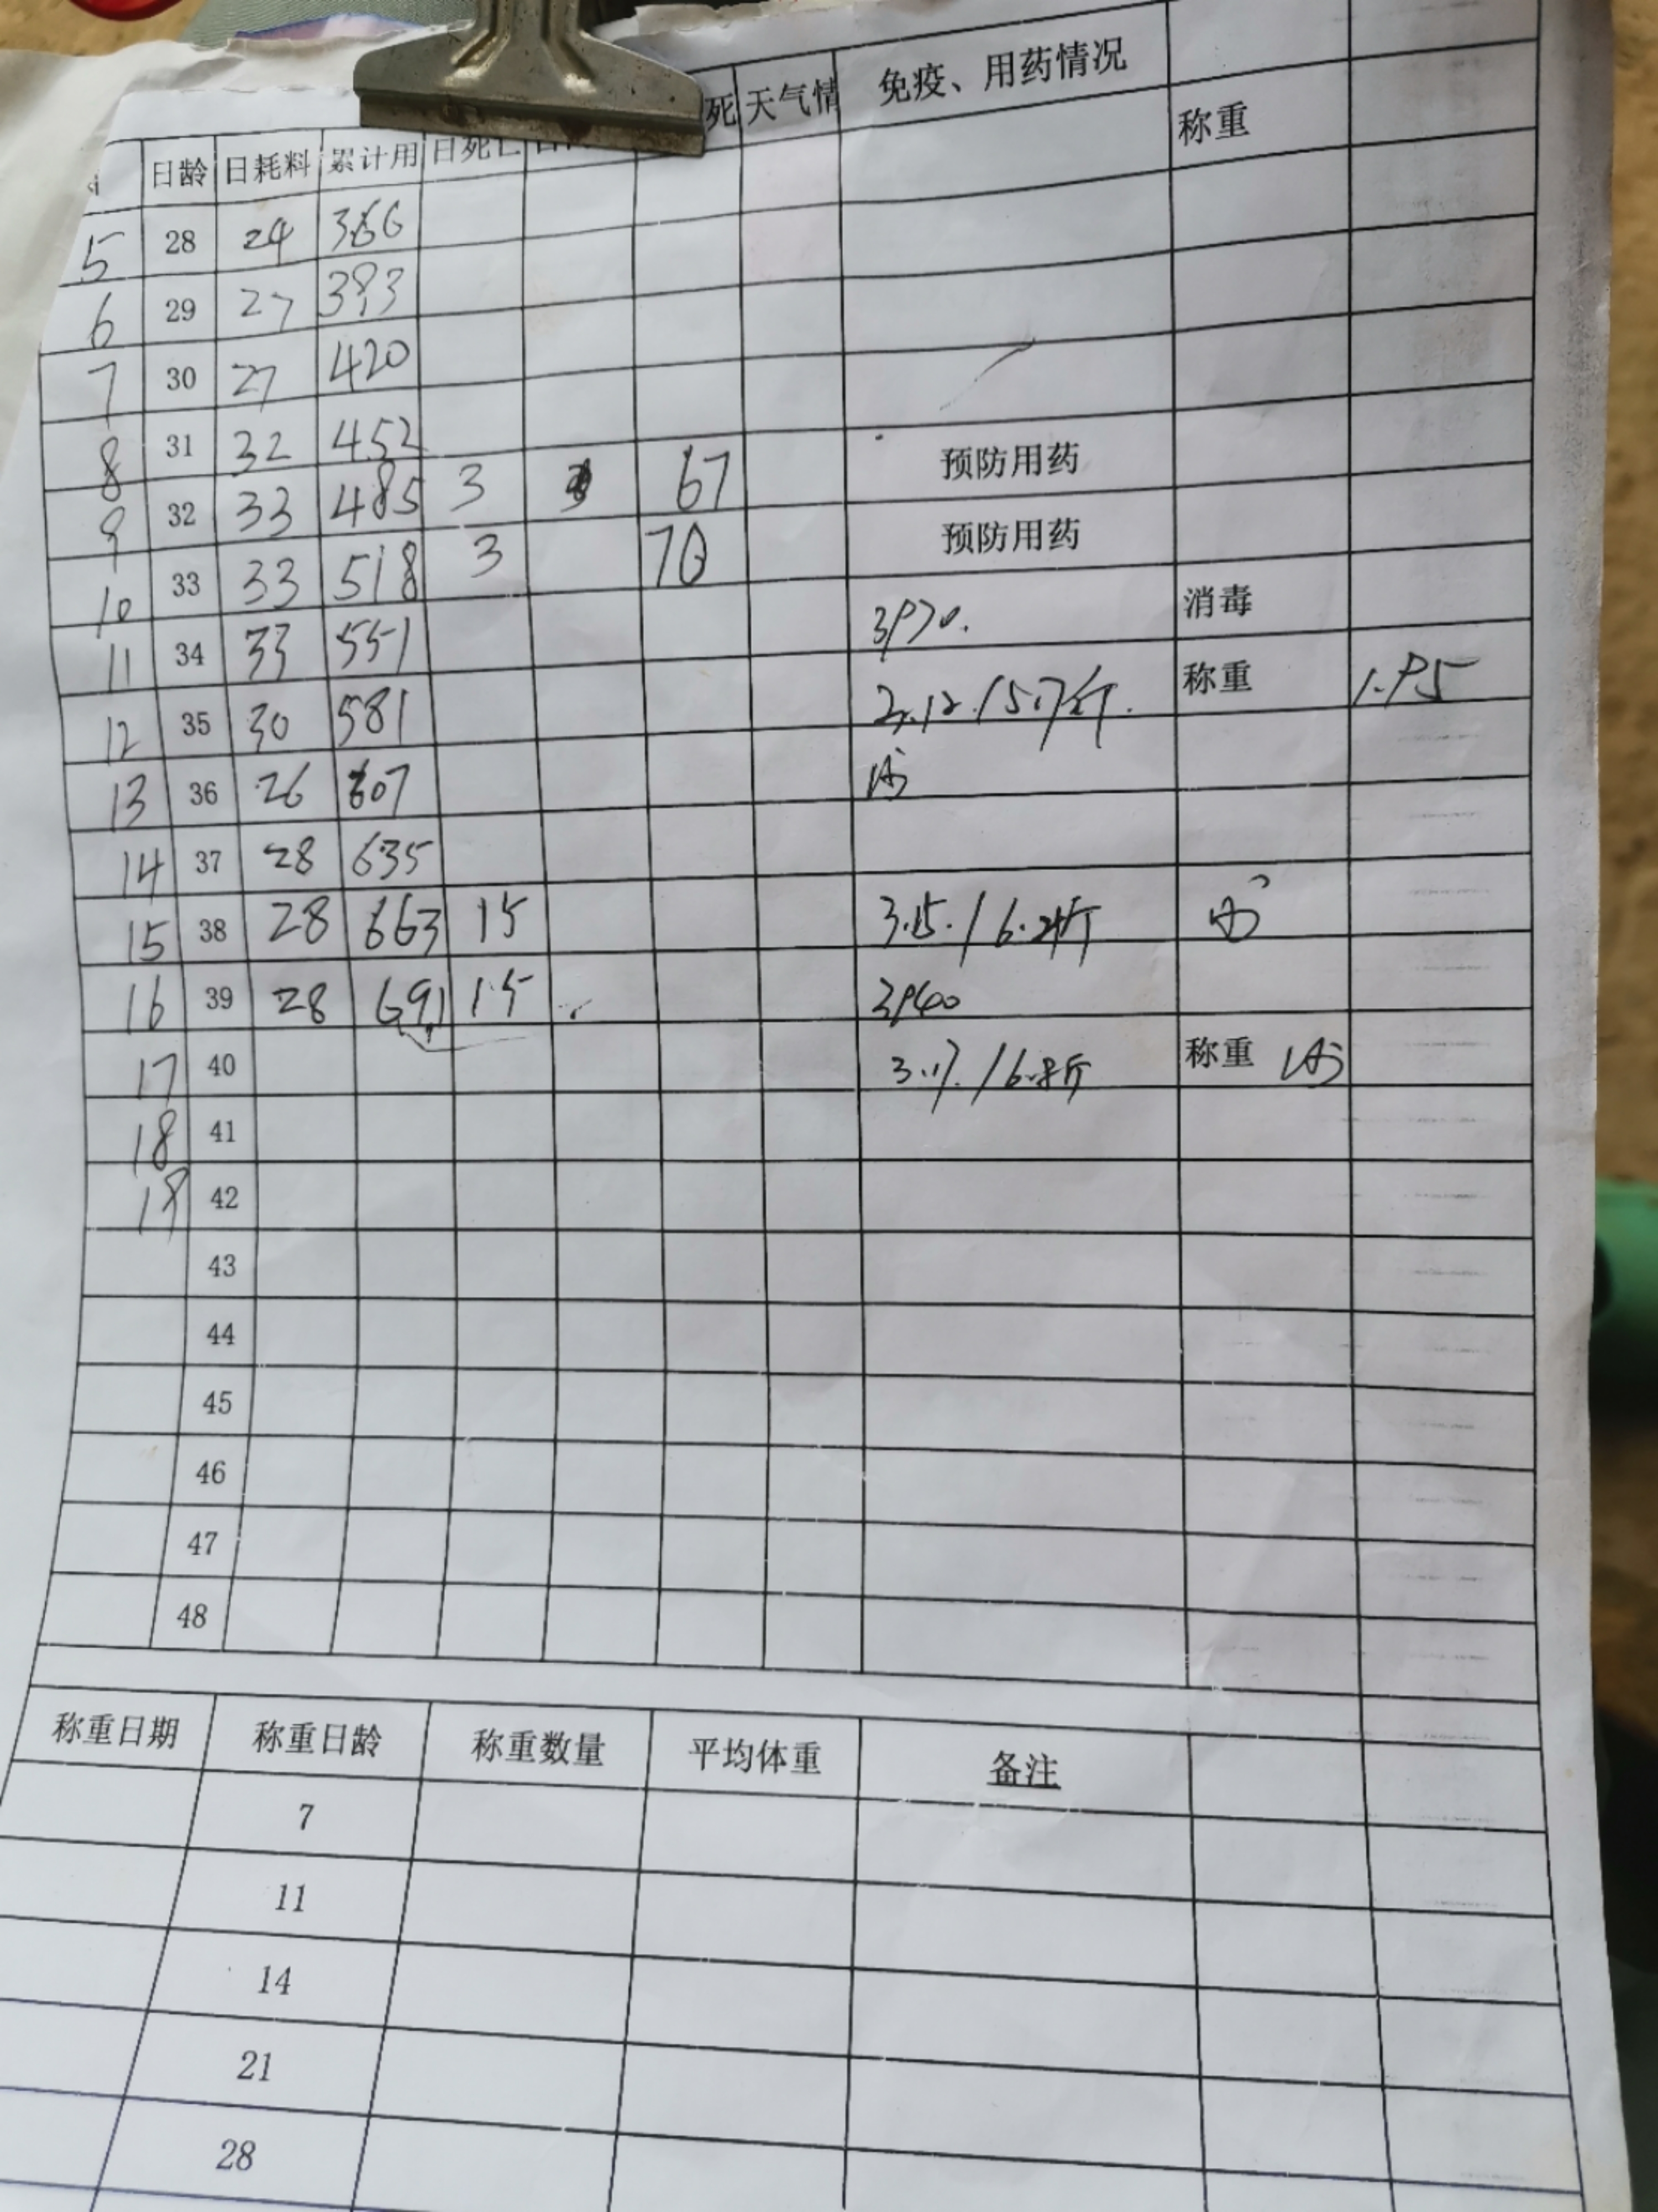 死 天气情 免疫、用药情况
日龄 日耗料 累计用 日死亡 称重
5 28 24 366
6 29 27 393
7 30 27 420
8 31 32 452 预防用药
9 32 33 485 3 67 预防用药
10 33 33 518 3 70 消毒
11 34 33 551 3970. 称重 1.95
12 35 30 581
13 36 26 607
14 37 28 635
15 38 28 663 15 3.15.
16 39 28 691 15
17 40 3.17. 称重
18 41
19 42
43
44
45
46
47
48
称重日期 称重日龄 称重数量 平均体重 备注
7
11
14
21
28